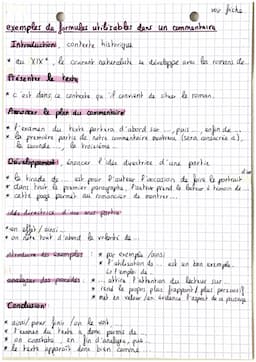 voir fiche
exemples de formules utilisables dans un commentaire
Introduction, contexte historique
* au XIX°, le courant naturaliste se développe avec les romans de
Présenter le texte
* c'est dans ce contexte qu'il convient de situer le roman.
Annoncer le plan du commentaire
* l'examen du texte portera d'abord sur ..., puis ..., enfin de ...
* la première partie de notre commentaire montrera (sera consacrée à).
la seconde ..., la troisième ...
Développement, énoncer l'idée directrice d'une partie
* la tirade de ... est pour l'auteur l'occasion de faire le portrait
* dans tout le premier paragraphe, l'auteur prend le lecteur à témoin de ...
* cette page permet au romancier de montrer ...
idée directrice d'une sous partie
* en effet / ainsi
* on note tout d'abord la volonté de ...
introduire des exemples : * par exemple / ainsi
* l'utilisation de ... est un bon exemple.
* l'emploi de ...
analyser des procédés : * ... attire l'attention du lecteur sur ...
* rend le propos plus frappant / plus personnel
* met en valeur / en évidence l'aspect de ce passage
Conclusion
* ainsi / pour finir / on le voit
* l'examen du texte a donc permis de ...
* on constate, en fin d'analyse, que ...
* le texte apparaît donc bien comme